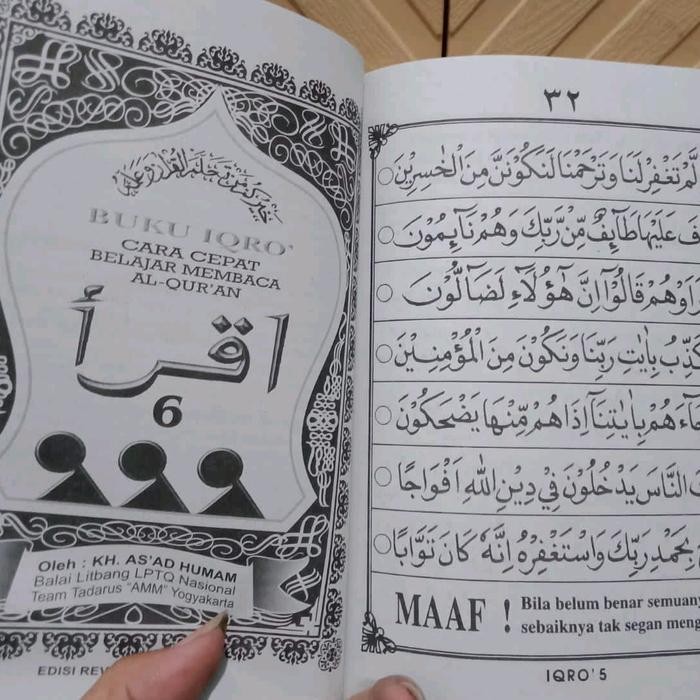 خيركم من تعلم القرآن وعلمه
BUKU IQRO'
CARA CEPAT
BELAJAR MEMBACA
AL-QUR'AN
اقرأ
6
Oleh : KH. AS'AD HUMAM
Balai Litbang LPTQ Nasional
Team Tadarus "AMM" Yogyakarta
EDISI REV
٣٢
لَّمْ تَغْفِرْ لَنَا وَتَرْحَمْنَا لَنَكُوْنَنَّ مِنَ الْخٰسِرِيْنَ
عَلَيْهَا طَآئِفٌ مِّنْ رَّبِّكَ وَهُمْ نَآئِمُوْنَ
وْهُمْ قَالُوْآ اِنَّ هٰٓؤُلَآءِ لَضَآلُّوْنَ
بِاٰيٰتِ رَبِّنَا وَنَكُوْنَ مِنَ الْمُؤْمِنِيْنَ
جَآءَهُمْ بِاٰيٰتِنَآ اِذَا هُمْ مِّنْهَا يَضْحَكُوْنَ
النَّاسَ يَدْخُلُوْنَ فِيْ دِيْنِ اللّٰهِ اَفْوَاجًا
بِحَمْدِ رَبِّكَ وَاسْتَغْفِرْهُ اِنَّهٗ كَانَ تَوَّابًا
MAAF !
Bila belum benar semuany
sebaiknya tak segan meng
IQRO' 5